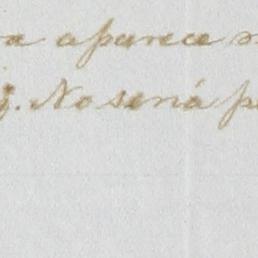 a aparece
. No será p